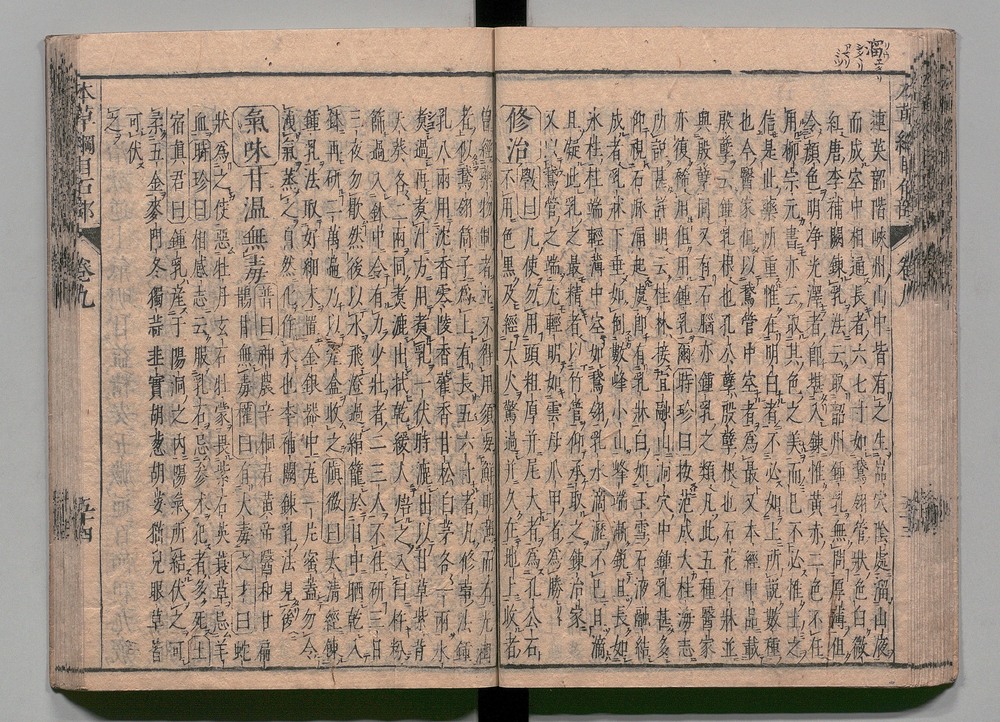 連英韶階峽州山中皆有之生嵓穴陰處溜山液
而成空中相通長者六七寸如鵞翎管狀色白微
紅唐李補闕鍊乳法云取韶州鍾乳無問厚薄但
令顏色明浄光澤者卽堪入鍊惟黃赤二色不任
用柳宗元書亦云取其色之美而已不必惟土之
信是此藥所重惟在明白者不必如上所說數種
也今醫家但以鵞管中空者爲最又本經中品載
殷孽云鍾乳根也孔公孽殷孽根也石花石牀並
與殷孽同又有石腦亦鍾乳之類凡此五種醫家
亦復稀用但用鍾乳爾時珍曰按范成大桂海志
所說甚詳明云桂林接宜融山洞穴中鍾乳甚多
仰視石脉涌起處卽有乳牀白如玉雪石液融結
成者乳牀下垂如倒數峰小山峰端漸銳且長如
氷柱柱端輕薄中空如鵞翎乳水滴瀝不已且滴
且凝此乳之最精者以竹管仰承取之鍊治家
又以鵞管之端尤輕明如雲母爪甲者爲勝
修治斆曰凡使勿用頭粗厚并尾大者爲孔公石
不用色黒及經大火驚過并久在地上收者
曾經藥物制者並不得用須要鮮明薄而有光潤
者似鵞翎筒子爲上有長五六寸者凡修事法鍾
乳八兩用沈香零陵香藿香甘松白茅各一兩水
煮過再煮汁方用煮乳一伏時漉出以甘草紫背
天葵各二兩同煮漉出拭乾緩火焙之入臼杵粉
篩過入鉢中令有力少壯者二三人不住研三日
三夜勿歇然後以水飛澄過絹籠於日中晒乾入
鉢再研二萬遍乃以瓷盒收之愼微曰太清經鍊
鍾乳法取好細末置金銀器中瓦一片密蓋勿令
洩氣蒸之自然化作水也李補闕鍊乳法見後
氣味甘溫無毒普曰神農辛桐君黃帝醫和甘扁
鵲甘無毒權曰有大毒之才曰蛇
狀爲之使惡牡丹玄石牡蒙畏紫石英蘘草忌羊
血時珍曰相感志云服乳石忌參朮犯者多死土
宿眞君曰鍾乳産于陽洞之內陽氣所結伏之可
柔五金麥門冬獨蒜韭實胡葱胡荽猫兒眼草皆
可伏
之